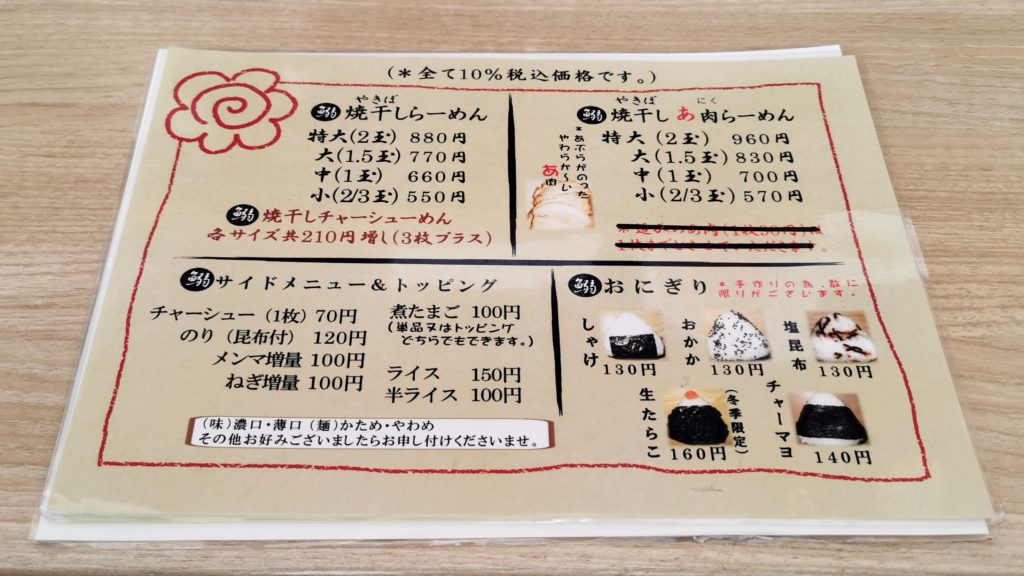 (＊全て10%税込価格です。)
やきば
鰯 焼干しらーめん
特大(2玉) 880円
大(1.5玉) 770円
中(1玉) 660円
小(2/3玉) 550円
鰯 焼干しチャーシューめん
各サイズ共210円増し(3枚プラス)
やきば にく
鰯 焼干しあ肉らーめん
特大(2玉) 960円
大(1.5玉) 830円
中(1玉) 700円
小(2/3玉) 570円
＊あぶらがのった
やわらか〜い
あ肉
鰯 サイドメニュー＆トッピング
チャーシュー(1枚) 70円
のり(昆布付) 120円
メンマ増量 100円
ねぎ増量 100円
煮たまご 100円
(単品又はトッピング
どちらでもできます。)
ライス 150円
半ライス 100円
(味)濃口・薄口(麺)かため・やわめ
その他お好みございましたらお申し付けくださいませ。
鰯 おにぎり
＊手作りの為、数に
限りがございます。
しゃけ
130円
おかか
130円
塩昆布
130円
生たらこ
(冬季限定)
160円
チャーマヨ
140円